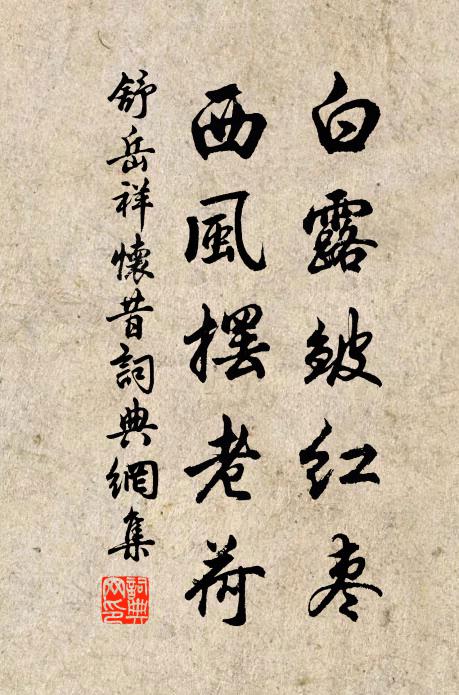 白露皴紅棗
西風擺老荷
舒岳祥懷昔詞典網集
詞典网印